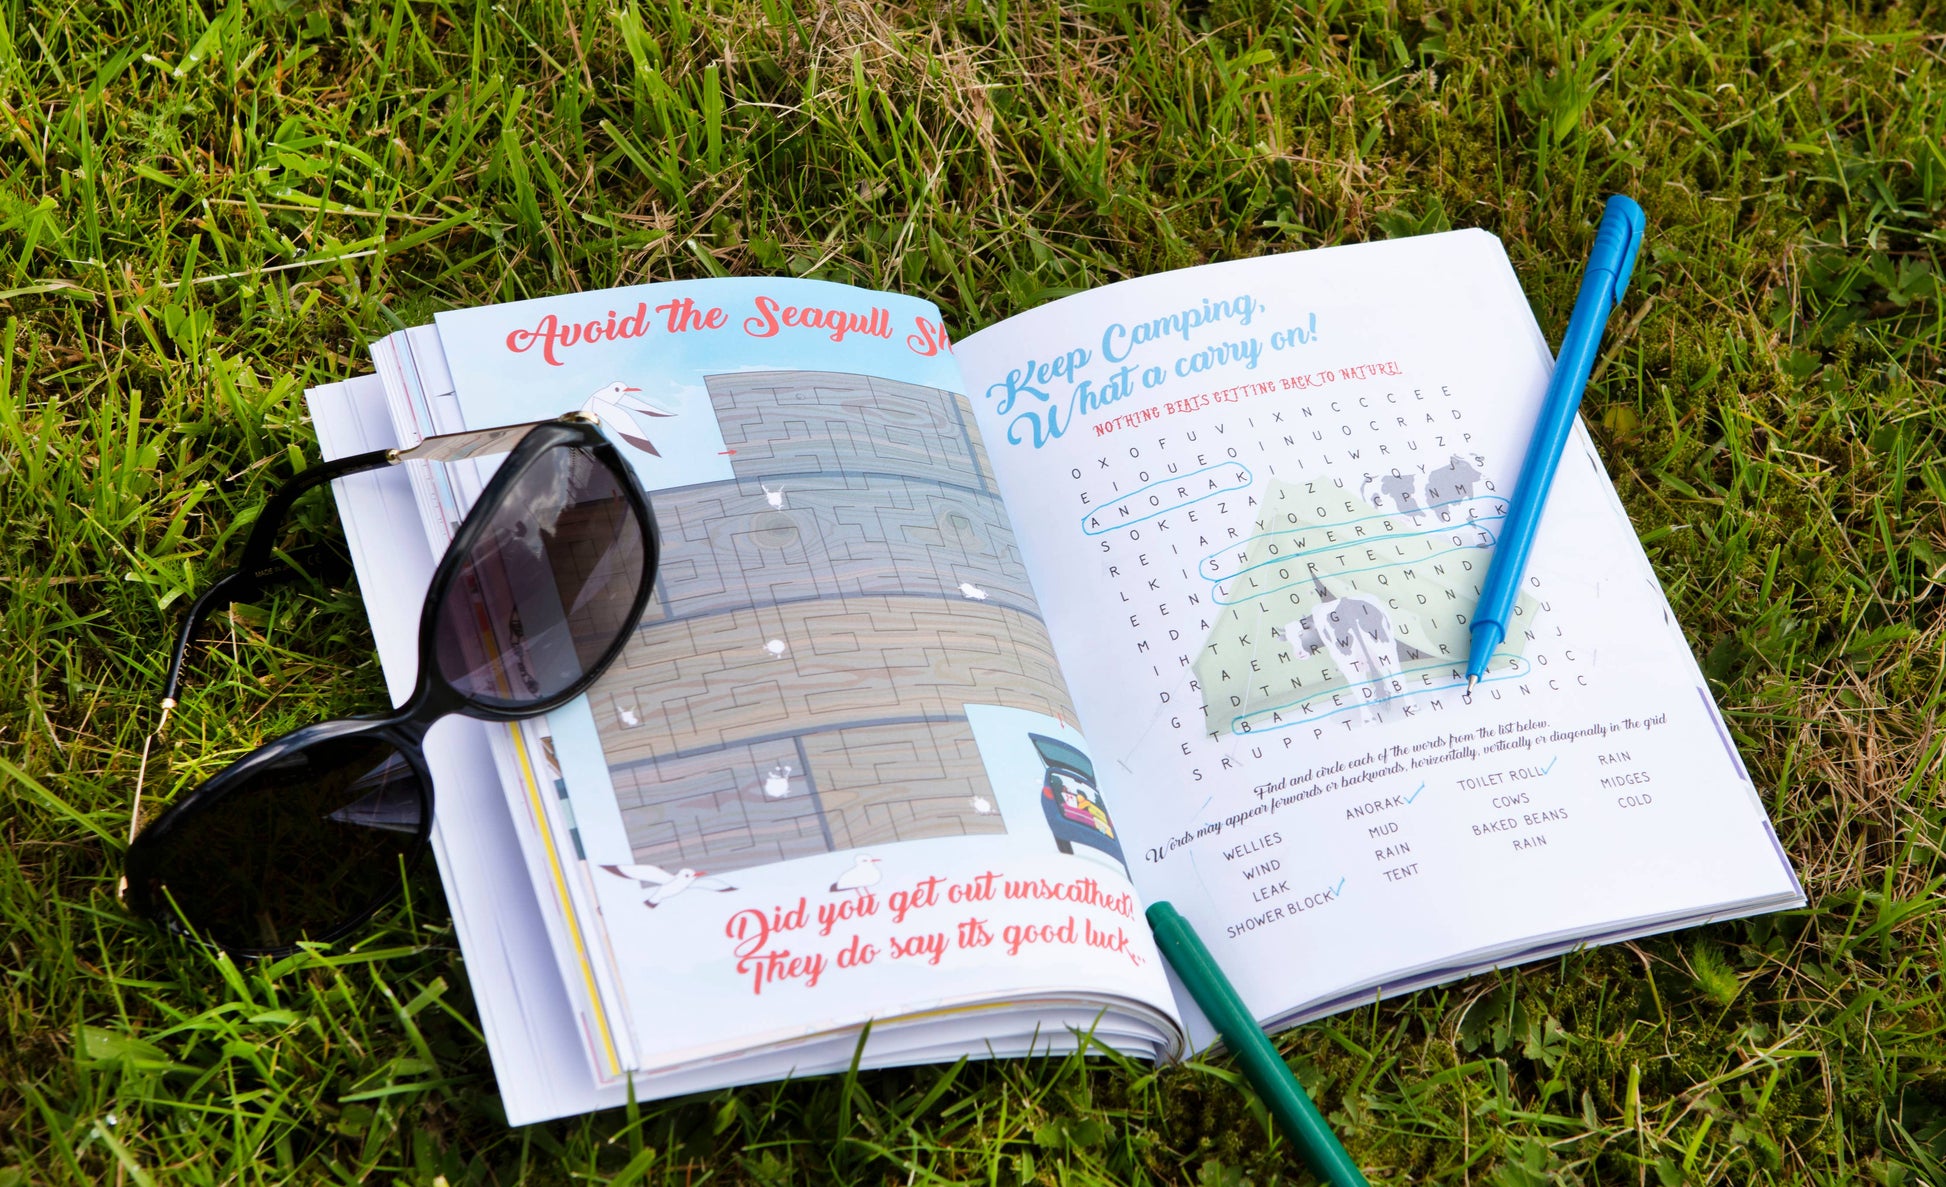 Avoid the Seagull
Did you get out unscathed?
They do say its good luck...
Keep Camping,
What a carry on!
NOTHING BEATS GETTING BACK TO NATURE!
O X O F U V I X N C C C E E
E I O U E O I N U O C R A D
A N O R A K I I L W R U Z P
S O K E Z A J Z U S Q Y J S
R E I A R Y O O E C P N M Q
L K I S H O W E R B L O C K
E E N L L O R T E L I O T
M D A I L O W I Q M N D O
I H T K A E G I C D N D U
D R A E M R W V U I D N J
G T D T N E T M W R
E T B A K E D B E A N S O C
S R U P P T I K M D U N C C
Find and circle each of the words from the list below.
Words may appear forwards or backwards, horizontally, vertically or diagonally in the grid
WELLIES
WIND
LEAK
SHOWER BLOCK
ANORAK
MUD
RAIN
TENT
TOILET ROLL
COWS
BAKED BEANS
RAIN
RAIN
MIDGES
COLD